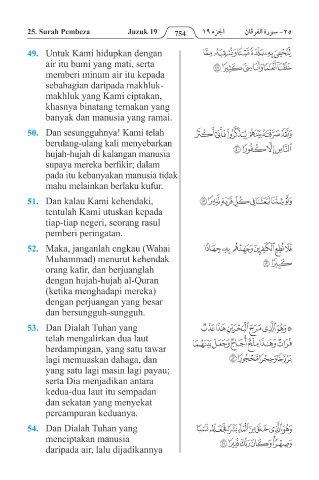 25. Surah Pembeza Juzuk 19 754 الجزء ١٩ ٢٥- سورة الفرقان
49. Untuk Kami hidupkan dengan
air itu bumi yang mati, serta
memberi minum air itu kepada
sebahagian daripada makhluk-
makhluk yang Kami ciptakan,
khasnya binatang ternakan yang
banyak dan manusia yang ramai.
لِّنُحْـِۧيَ بِهِۦ بَلْدَةً مَّيْتًا وَنُسْقِيَهُۥ مِمَّا
خَلَقْنَآ أَنْعَٰمًا وَأَنَاسِيَّ كَثِيرًا ۝
50. Dan sesungguhnya! Kami telah
berulang-ulang kali menyebarkan
hujah-hujah di kalangan manusia
supaya mereka berfikir; dalam
pada itu kebanyakan manusia tidak
mahu melainkan berlaku kufur.
وَلَقَدْ صَرَّفْنَٰهُ بَيْنَهُمْ لِيَذَّكَّرُوا۟ فَأَبَىٰٓ أَكْثَرُ
ٱلنَّاسِ إِلَّا كُفُورًا ۝
51. Dan kalau Kami kehendaki,
tentulah Kami utuskan kepada
tiap-tiap negeri, seorang rasul
pemberi peringatan.
وَلَوْ شِئْنَا لَبَعَثْنَا فِي كُلِّ قَرْيَةٍ نَّذِيرًا ۝
52. Maka, janganlah engkau (Wahai
Muhammad) menurut kehendak
orang kafir, dan berjuanglah
dengan hujah-hujah al-Quran
(ketika menghadapi mereka)
dengan perjuangan yang besar
dan bersungguh-sungguh.
فَلَا تُطِعِ ٱلْكَٰفِرِينَ وَجَٰهِدْهُم بِهِۦ جِهَادًا
كَبِيرًا ۝
53. Dan Dialah Tuhan yang
telah mengalirkan dua laut
berdampingan, yang satu tawar
lagi memuaskan dahaga, dan
yang satu lagi masin lagi payau;
serta Dia menjadikan antara
kedua-dua laut itu sempadan
dan sekatan yang menyekat
percampuran keduanya.
۞ وَهُوَ ٱلَّذِي مَرَجَ ٱلْبَحْرَيْنِ هَٰذَا عَذْبٌ
فُرَاتٌ وَهَٰذَا مِلْحٌ أُجَاجٌ وَجَعَلَ بَيْنَهُمَا
بَرْزَخًا وَحِجْرًا مَّحْجُورًا ۝
54. Dan Dialah Tuhan yang
menciptakan manusia
daripada air, lalu dijadikannya
وَهُوَ ٱلَّذِي خَلَقَ مِنَ ٱلْمَآءِ بَشَرًا فَجَعَلَهُۥ نَسَبًا
وَصِهْرًا ۗ وَكَانَ رَبُّكَ قَدِيرًا ۝